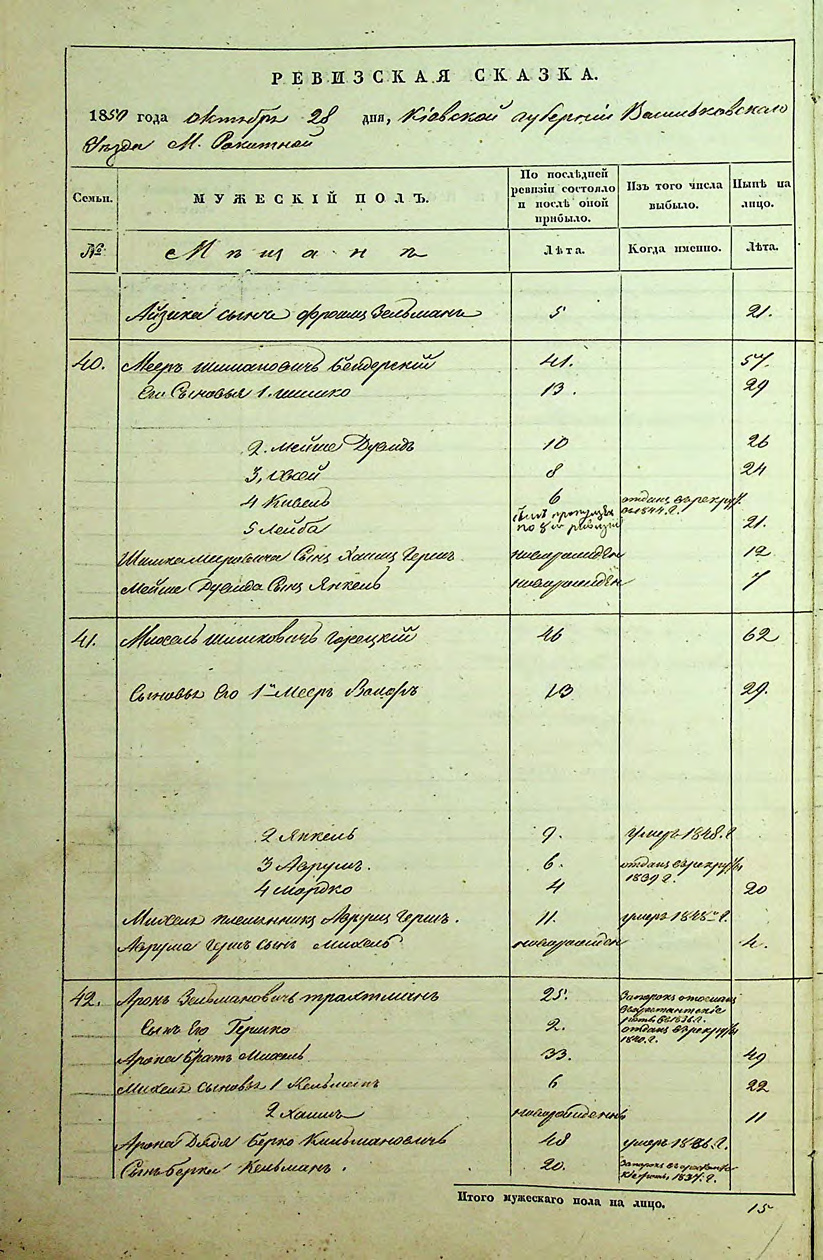 РЕВИЗСКАЯ СКАЗКА.
1850 года октября 28 дня, Кіевской губерніи Васильковскаго
Уѣзда М. Ракитной
Семьи. МУЖЕСКІЙ ПОЛЪ. По послѣдней ревизіи состояло и послѣ оной прибыло. Изъ того числа выбыло. Нынѣ на лицо.
№ Мѣщане Лѣта. Когда именно. Лѣта.
Айзика сынъ Фроимъ Зельманъ 5 21.
40. Мееръ Шимановичъ Бендерскій 41. 57.
Его Сыновья 1. Шимко 13. 29
2. Мейше Дувидъ 10 26
3, 8 24
4 Кивель 6 отданъ въ рекруты въ 1844. г.
5 Лейба былъ пропущенъ по 8й ревизіи 21.
Сынъ Хаимъ Гершъ новорожден 12
Мейше Дувида Сынъ Янкель новорожден 7
41. Михель Шимковичъ Горецкій 46 62
Сыновья Его 1й Мееръ 13 29.
2 Янкель 9. умеръ 1848. г
3 Аврумъ. 6. отданъ въ рекруты 1839 г.
4 Мордко 4 20
Михеля племянникъ Аврумъ Гершъ. 11. умеръ 1848 г.
Аврума Гершъ сынъ Михель новорожден 4.
42. Аронъ Зельмановичъ Трахтманъ 25. отосланъ въ арестантскіе роты въ 1836. г.
Сынъ Его Гершко 2. отданъ въ рекруты 1840. г.
Арона Братъ Михель 33. 49
Михеля сыновья 1 Кельманъ 6 22
2 Хаимъ новорожденъ 11
Арона Дядя Берко Кильмановичъ 48 умеръ г.
Сынъ Берки Кельманъ. 20. роты 1837. г.
Итого мужескаго пола на лицо. 15